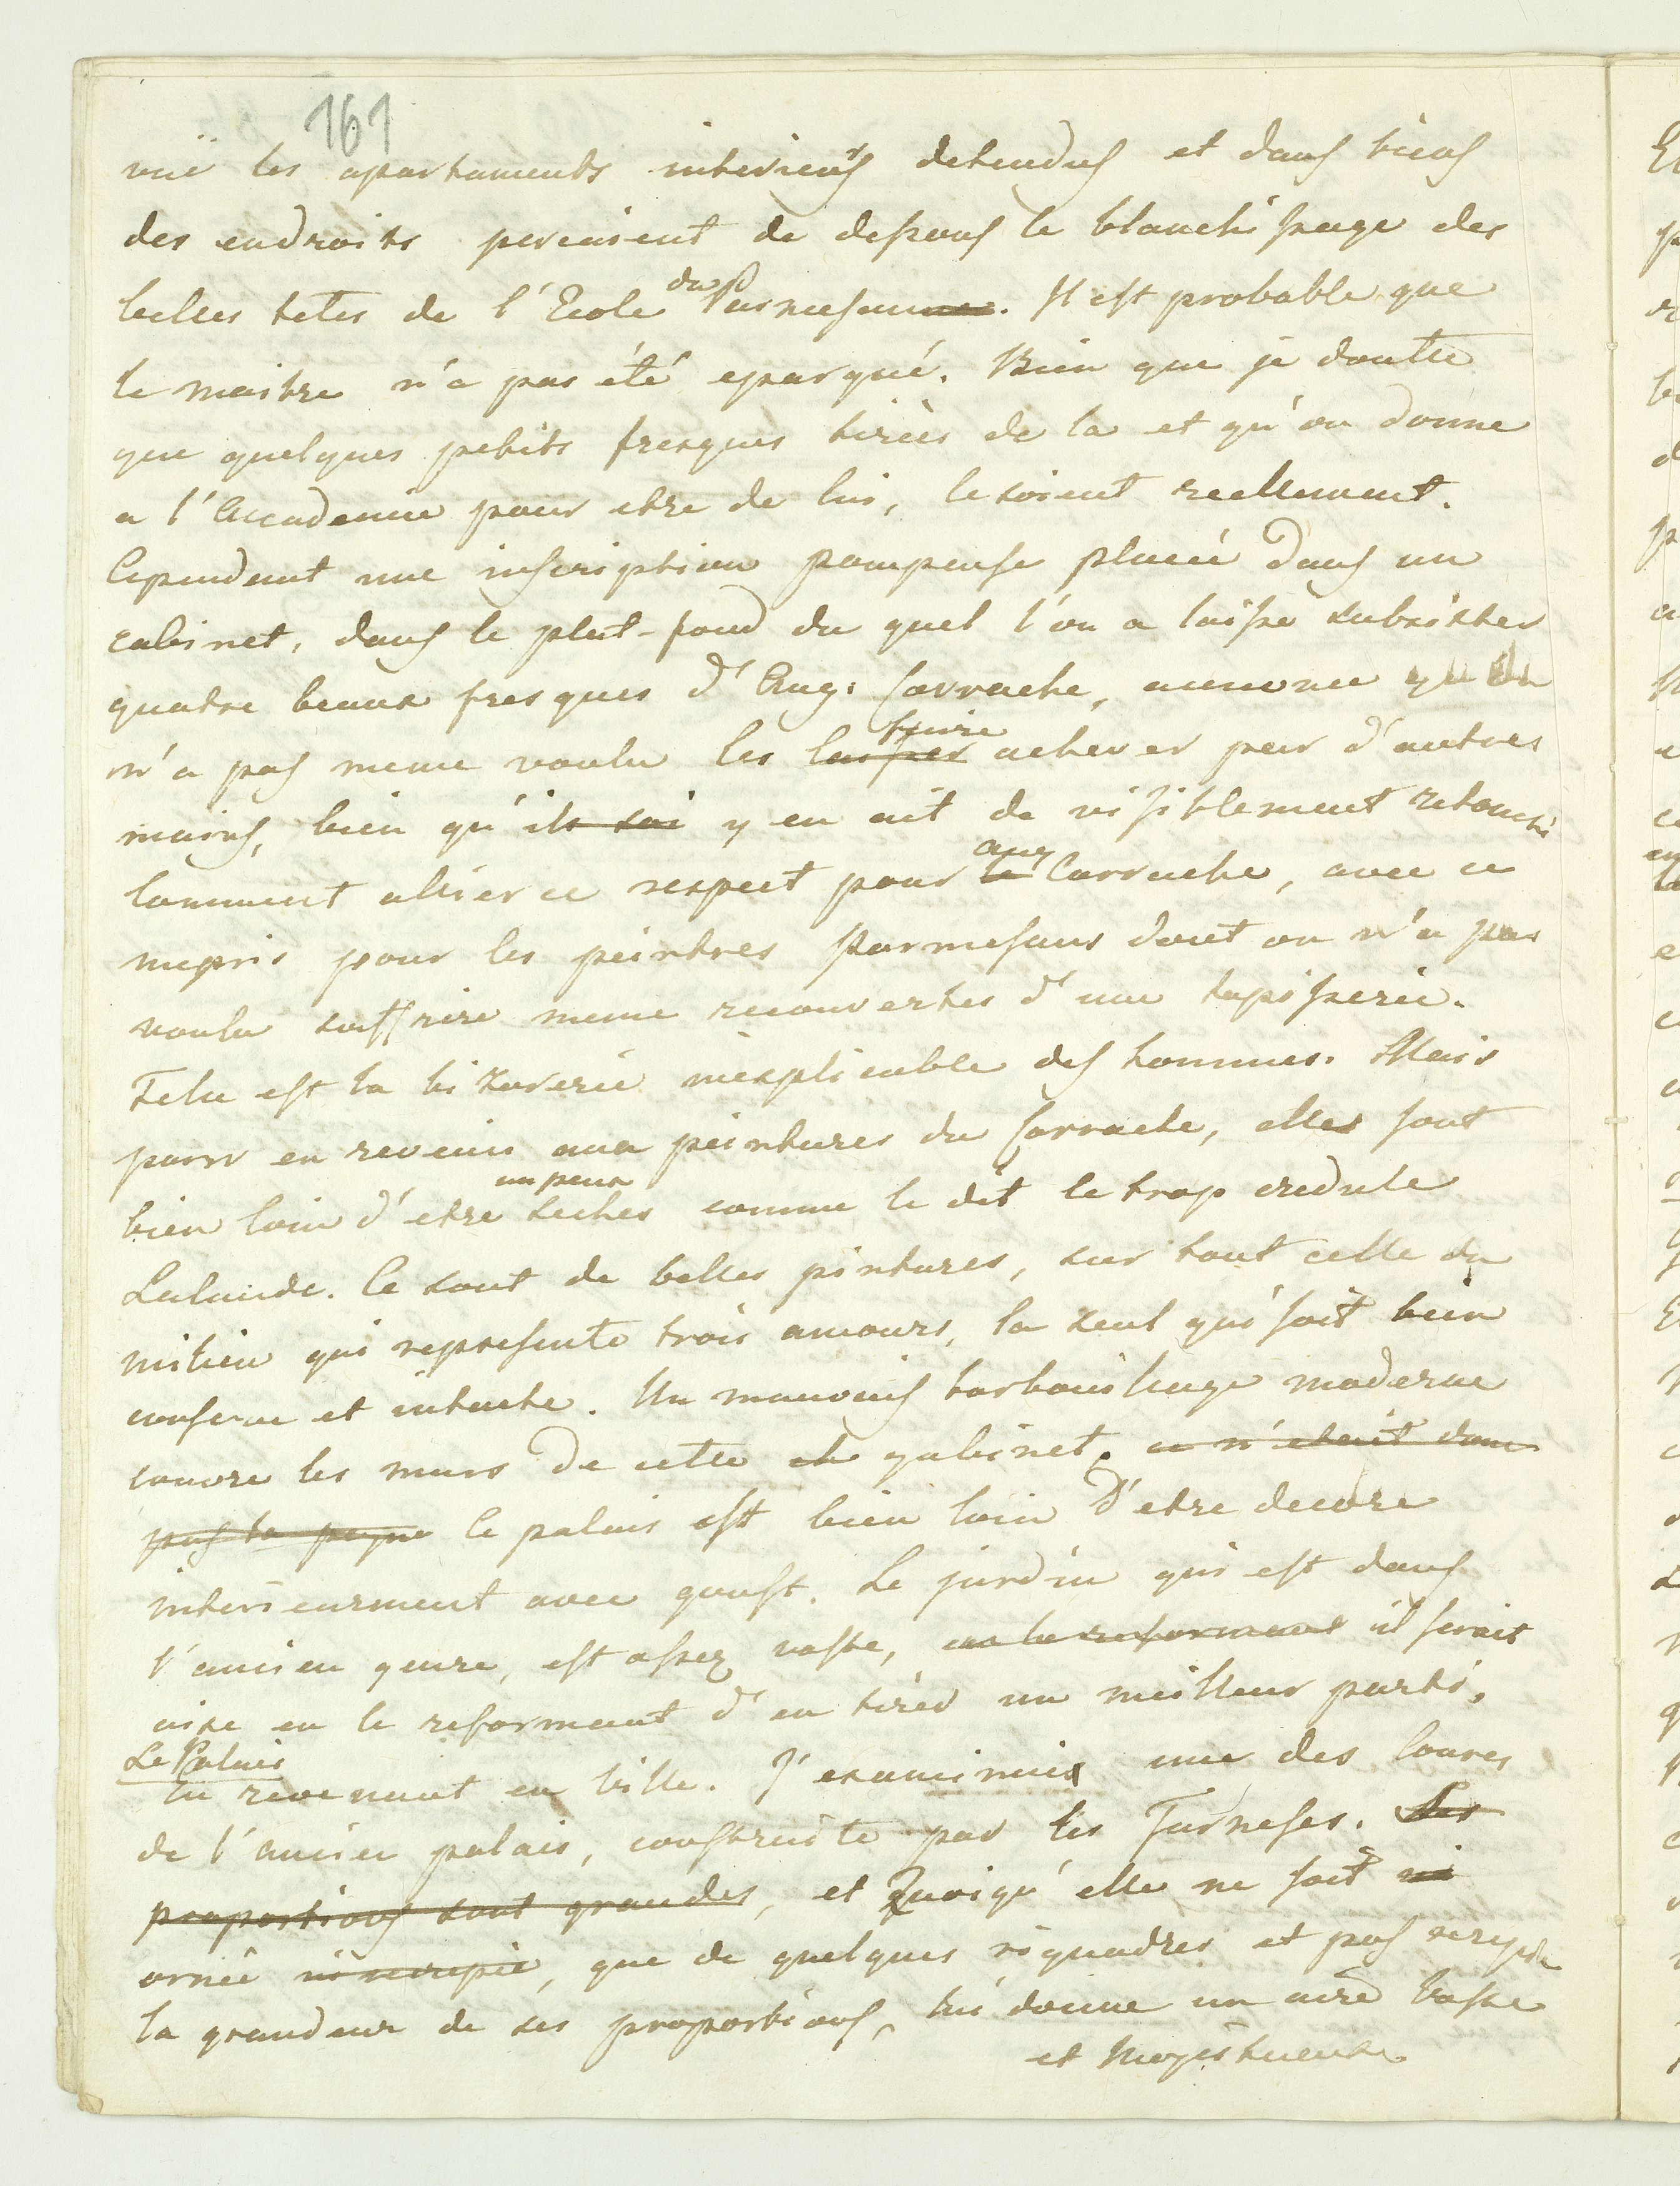 161
vuë les apartaments interieurs detendus et dans bien
des endroits percaient de dessous le blanchissage des
belles tetes de l'Ecole du Parmesan. Il est probable que
le maitre n'a pas été eparqué. Bien que je doutte
que quelques petits fresques tirées de la et qu'on donne
a l'Accademie pour etre de lui, le soient reellement.
Cependent une inscription pompeuse placée dans un
cabinet, dans le plat-fond du quel l'on a laisse subsister
quatre beaux fresques d'Aug: Carrache, annonce
n'a pas meme voulu les laisser faire achever par d'autres
mains, bien qu'ils soi y en ait de visiblement retouché
Comment allier ce respect pour le Aug Carrache, avec ce
mepris pour les peintres Parmesans dont on n'a pas
voulu souffrire meme recouvertes d'une tapisserie.
Telle est la bizarerie inexplicable des hommes. Mais
pour en revenir aux peintures du Carrache, elles sont
bien loin d'etre un peux seches comme le dit le trop credule
Lalande. Ce sont de belles pintures, sur tout celle du
milieu qui represente trois amours, la seul qui soit bien
conserve et intacte. Un mauvais barbouillage moderne
couvre les murs de cette ch gabinet. ce n'etait donc
pas la peyne Ce palais est bien loin d'etre decore
interieurment avec goust. Le jardin qui est dans
l'ancien genre, est assez vaste, en le reformant il serait
aise en le reformant d'en tirer un meilleur parti.
Le Palais
En revenant en ville. J'examinais une des Coures
de l'ancien palais, construite par les Farneses. Ses
proportions sont grandes, et Quoiqu'elle ne soit ni
ornée ni recrepie, que de quelques riquadres et pas
la grandeur de ses proportions, lui donne un aire vaste
et Magestueuse